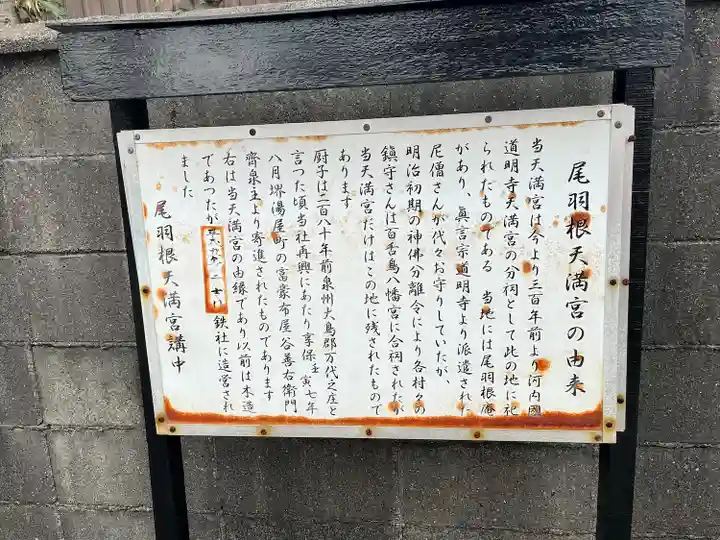 尾羽根天満宮の由来
当天満宮は今より三百年前より河内國
道明寺天満宮の分祠として此の地に祀
られたものである 当地には尾羽根庵
があり、眞言宗道明寺より派遣された
尼僧さんが代々お守りしていたが、
明治初期の神佛分離令により各村々の
鎮守さんは百舌鳥八幡宮に合祠されたが
当天満宮だけはこの地に残されたもので
あります
厨子は二百八十年前泉州大鳥郡万代之庄と
言つた頃当社再興にあたり享保壬寅七年
八月堺湯屋町の富豪布屋谷善右衛門
齊泉主より寄進されたものであります
右は当天満宮の由縁であり以前は木造
であつたが 鉄社に造営され
ました
尾羽根天満宮講中